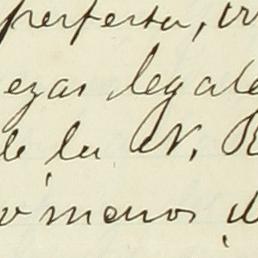 perfecta, 
ezas legale
de la N. R
menos